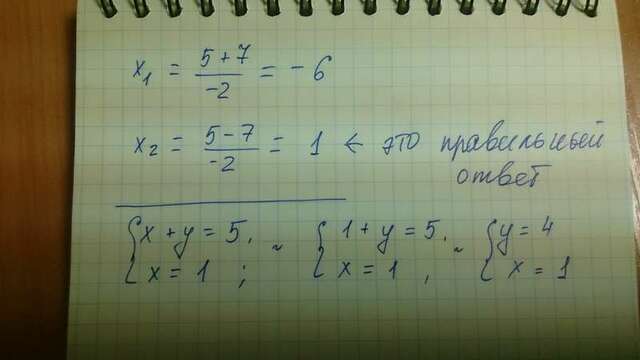 x₁ = (5+7)/(-2) = -6
x₂ = (5-7)/(-2) = 1 ← это правильный
ответ
{x+y=5, ~ {1+y=5, ~ {y=4
{x=1; {x=1, {x=1